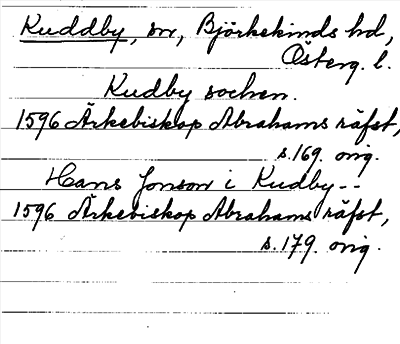 Kuddby, sn, Björkekinds hd,
Österg. l.
Kudby sochen.
1596 Ärkebiskop Abrahams räfst,
s. 169. orig.
Hans Jonson i Kudby--
1596 Ärkebiskop Abrahams räfst,
s. 179. orig.